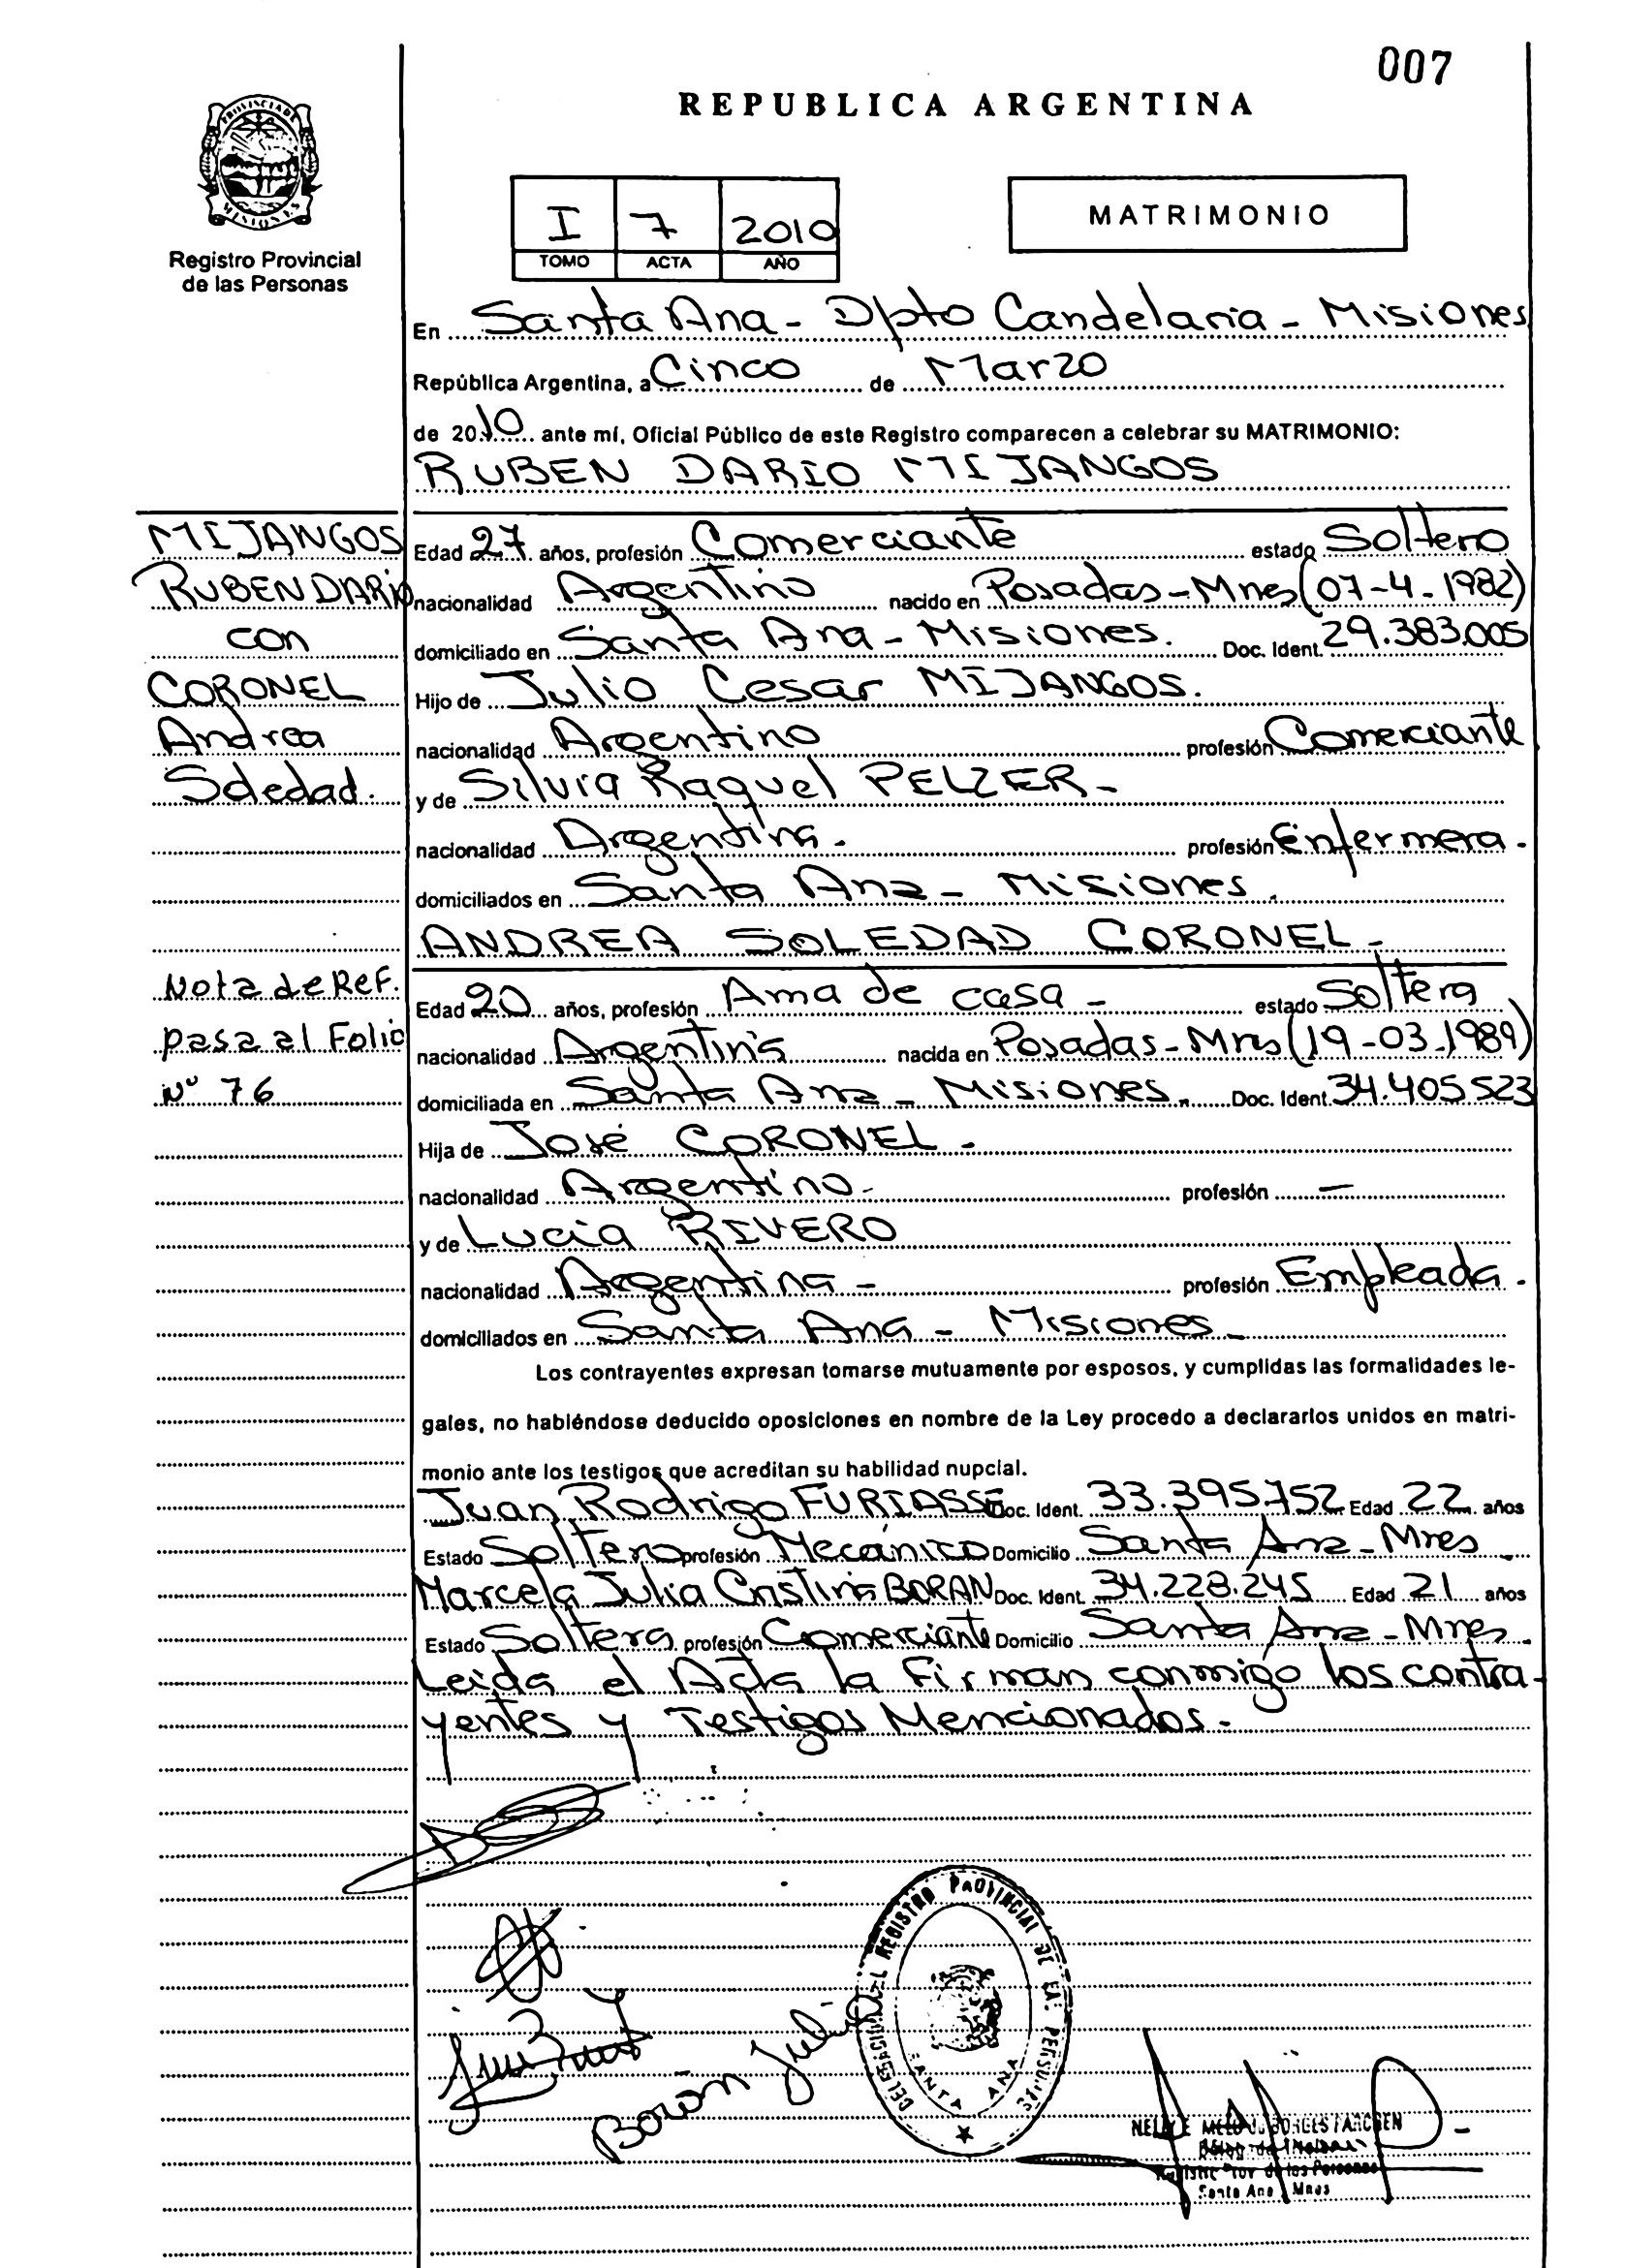 007
REPUBLICA ARGENTINA
PROVINCIA DE MISIONES
Registro Provincial
de las Personas
I 7 2010
TOMO ACTA AÑO
MATRIMONIO
En Santa Ana - Dpto Candelaria - Misiones
República Argentina, a Cinco de Marzo
de 2010 ante mí, Oficial Público de este Registro comparecen a celebrar su MATRIMONIO:
RUBEN DARIO MIJANGOS
MIJANGOS
RUBEN DARIO
con
CORONEL
Andrea
Soledad.
Nota de Ref.
pasa al Folio
Nº 76
Edad 27 años, profesión Comerciante estado Soltero
nacionalidad Argentino nacido en Posadas - Mnes (07-4-1982)
domiciliado en Santa Ana - Misiones. Doc. Ident. 29.383.005
Hijo de Julio Cesar MIJANGOS.
nacionalidad Argentino profesión Comerciante
y de Silvia Raquel PELZER -
nacionalidad Argentina - profesión Enfermera.
domiciliados en Santa Ana - Misiones.
ANDREA SOLEDAD CORONEL -
Edad 20 años, profesión Ama de casa - estado Soltera
nacionalidad Argentina nacida en Posadas - Mnes (19-03-1989)
domiciliada en Santa Ana - Misiones - Doc. Ident. 34.405523
Hija de José CORONEL -
nacionalidad Argentino - profesión —
y de Lucia RIVERO
nacionalidad Argentina - profesión Empleada.
domiciliados en Santa Ana - Misiones -
Los contrayentes expresan tomarse mutuamente por esposos, y cumplidas las formalidades le-
gales, no habiéndose deducido oposiciones en nombre de la Ley procedo a declararlos unidos en matri-
monio ante los testigos que acreditan su habilidad nupcial.
Juan Rodrigo FURIASSE Doc. Ident. 33.395.752 Edad 22 años
Estado Soltero profesión Mecánico Domicilio Santa Ana - Mnes
Marcela Julia Cristina BORAN Doc. Ident. 34.228.245 Edad 21 años
Estado Soltera profesión Comerciante Domicilio Santa Ana - Mnes.
Leida el Acta la firman conmigo los contra-
yentes y Testigos Mencionados.
Borán Julia
DELEGACION REGISTRO PROVINCIAL DE LAS PERSONAS
SANTA ANA
Santa Ana Mnes